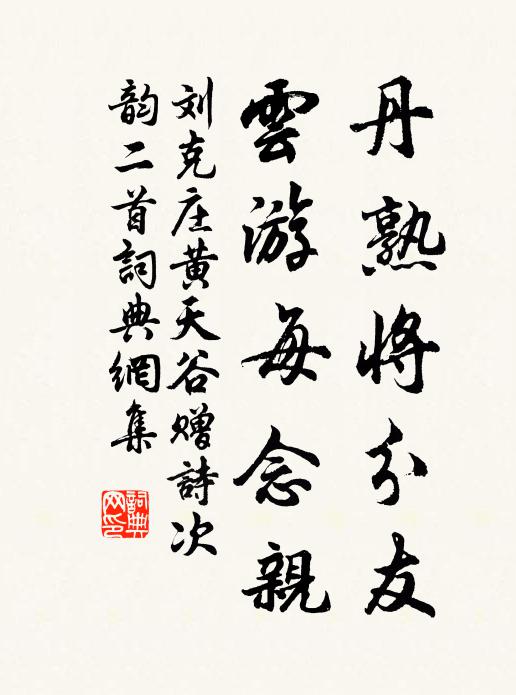 丹熟將分友
雲游每念親
刘克庄黄天谷赠詩次
韵二首詞典網集
詞典
网印